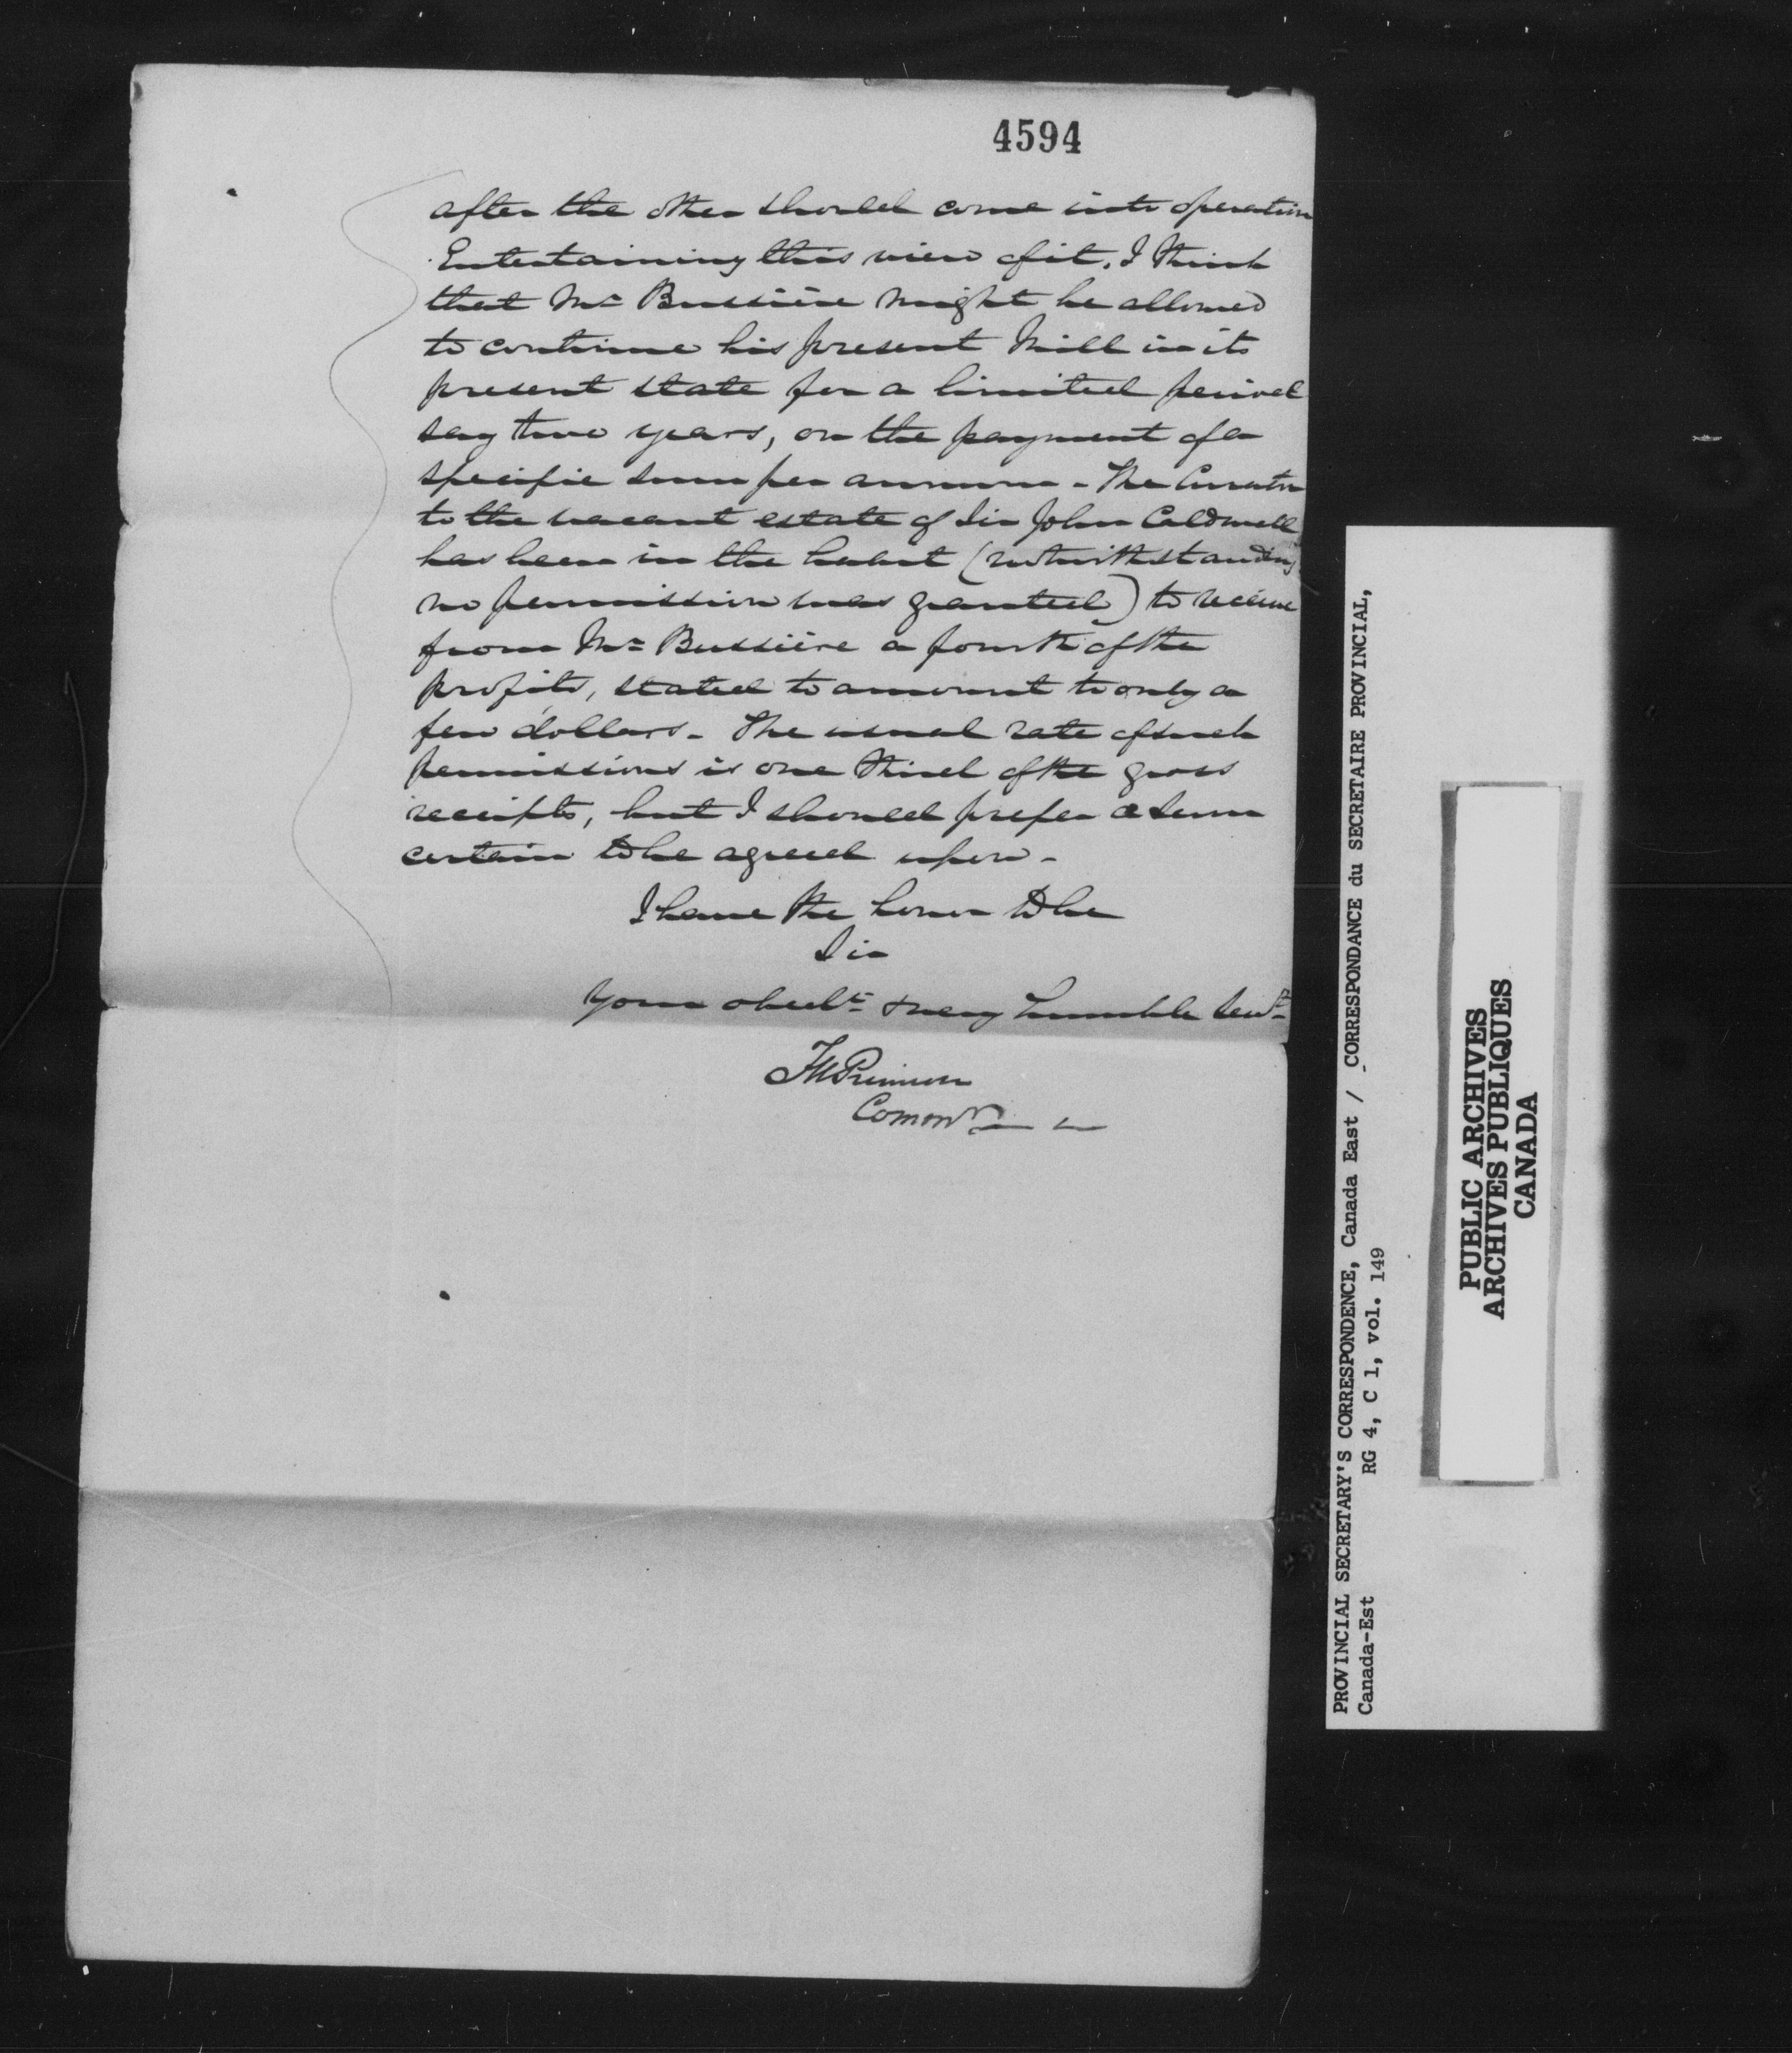 4594
after the other should come into operation
Entertaining this view of it, I think
that Mr Bussière might be allowed
to continue his present Mill in its
present state for a limited period
say two years, on the payment of a
specific sum per annum - The Curator
to the vacant estate of Sir John Caldwell
has been in the habit (notwithstanding
no permission was granted) to receive
from Mr Bussière a fourth of the
profits, stated to amount to only a
few dollars - The usual rate of such
permissions is one third of the gross
receipts, but I should prefer a sum
certain to be agreed upon -
I have the honor to be
Sir
Your obedt & very humble Servt
Comonr
PROVINCIAL SECRETARY'S CORRESPONDENCE, Canada East / CORRESPONDANCE du SECRETAIRE PROVINCIAL,
Canada-Est RG 4, C 1, vol. 149
PUBLIC ARCHIVES
ARCHIVES PUBLIQUES
CANADA